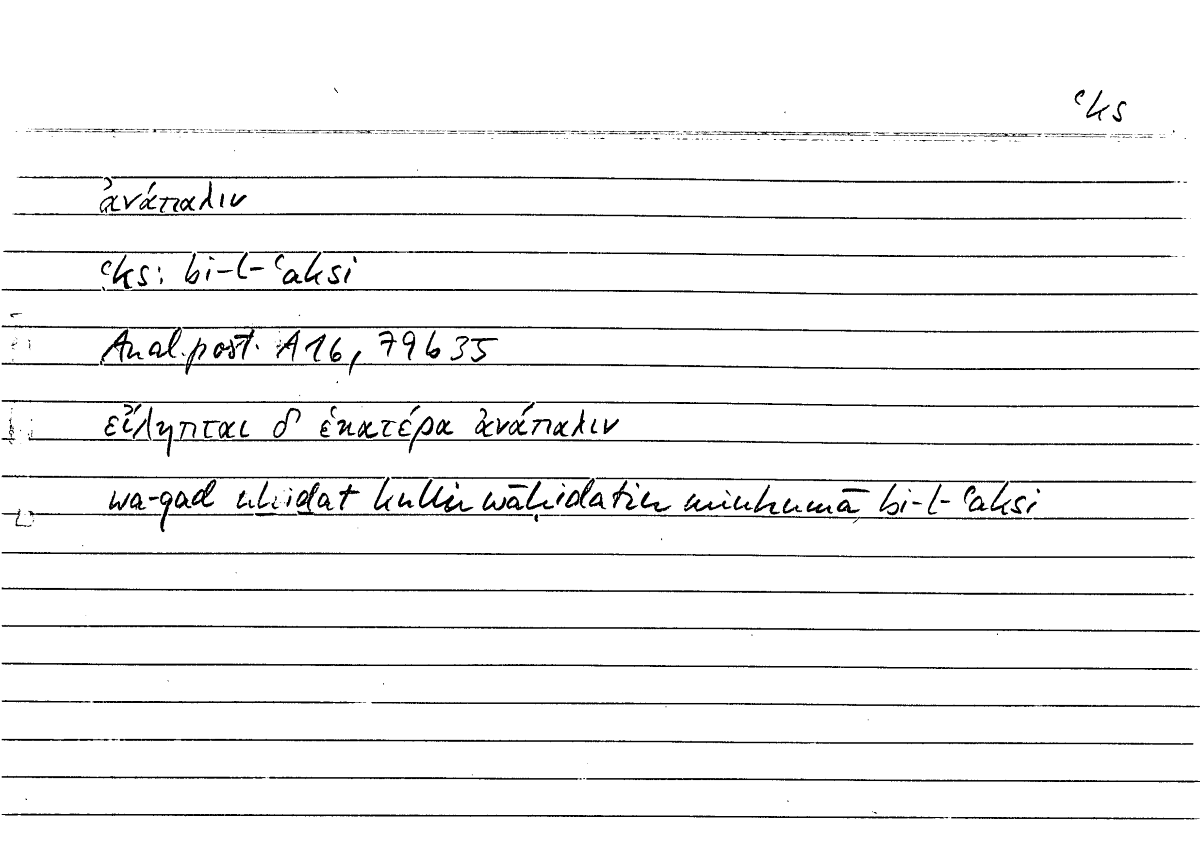 ʿks
ἀνάπαλιν
ʿks: bi-l-ʿaksi
Anal. post. A16, 79b35
εἴληπται δ' ἑκατέρα ἀνάπαλιν
wa-qad uḫiḏat kullu wāḥidatin minhumā bi-l-ʿaksi